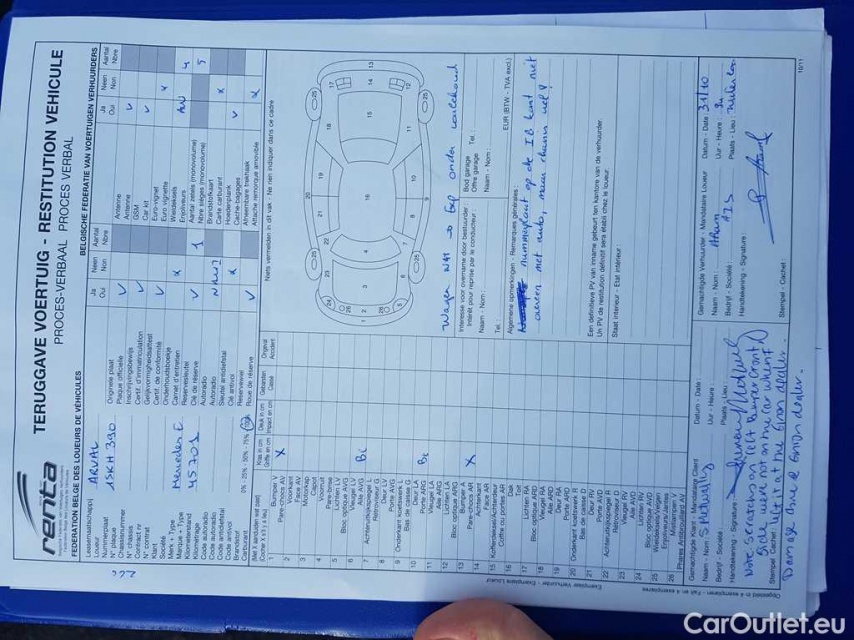 renta
TERUGGAVE VOERTUIG - RESTITUTION VEHICULE
PROCES-VERBAAL PROCES VERBAL
FEDERATION BELGE DES LOUEURS DE VÉHICULES
BELGISCHE FEDERATIE VAN VOERTUIGEN VERHUURDERS
Leasemaatschappij
Loueur
ARVAL
Nummerplaat
N° plaque
1SKH390
Chassisnummer
N° châssis
Contract nr
N° contrat
Klant
Société
Merk - Type
Marque - Type
Mercedes E
Kilometerstand
Kilométrage
45701
Code autoradio
Code autoradio
Code antidiefstal
Code antivol
Brandstof
Carburant
0% - 25% - 50% - 75% - 100%
Ja Neen Aantal
Oui Non Nbre
Originele plaat
Plaque officielle
Inschrijvingsbewijs
Certif. d'immatriculation
Gelijkvormigheidsattest
Certif. de conformité
Onderhoudsboekje
Carnet d'entretien
Reservesleutel
Clé de réserve
1
Autoradio
Autoradio
Sleutel antidiefstal
Clé antivol
Reservewiel
Roue de réserve
Ja Neen Aantal
Oui Non Nbre
Antenne
Antenne
GSM
Car kit
Euro-vignet
Euro vignette
Wieldeksels
Enjoliveurs
4
Aantal zetels (monovolume)
Nbre sièges (monovolume)
5
Brandstofkaart
Carte carburant
Hoedenplank
Cache-bagages
Afneembare trekhaak
Attache remorque amovible
Niets vermelden in dit vak - Ne rien indiquer dans ce cadre
Kras in cm
Griffe en cm
Deuk in cm
Impact en cm
Gebarsten
Cassé
Ongeval
Accident
1 Bumper V
Pare-chocs AV
X
2 Voorkant
Face AV
3 Motorkap
Capot
4 Voorruit
Pare-brise
5 Lichten LV
Bloc optique AVG
6 Vleugel LV
Aile AVG
7 Achteruitkijkspiegel L
Rétroviseur G
8 Deur LV
Porte AVG
9 Onderkant koetswerk L
Bas de caisse G
10 Deur LA
Porte ARG
11 Vleugel LA
Aile ARG
12 Lichten LA
Bloc optique ARG
13 Bumper A
Pare-chocs AR
X
14 Achterkant
Face AR
15 Kofferdeksel/Achterdeur
Coffre ou portes AR
16 Dak
Toit
17 Lichten RA
Bloc optique ARD
18 Vleugel RA
Aile ARD
19 Deur RA
Porte ARD
20 Onderkant koetswerk R
Bas de caisse D
21 Deur RV
Porte AVD
22 Achteruitkijkspiegel R
Rétroviseur D
23 Vleugel RV
Aile AVD
24 Lichten RV
Bloc optique AVD
25 Wieldeksels/Velgen
Enjoliveurs/Jantes
26 Mistlampen V
Phares Antibrouillard AV
Interesse voor overname door bestuurder
Intérêt pour reprise par le conducteur
Naam - Nom :
Tel. :
Bod garage
Offre garage
EUR (BTW - TVA excl.)
Naam - Nom :
Tel.
Algemene opmerkingen - Remarques générales :
nummerplaat op de
met auto, maar
Een definitieve PV van inname gebeurt ten kantore van de verhuurder.
Un PV de restitution définitif sera établi chez le loueur.
Staat interieur - Etat intérieur :
Gemachtigde Klant - Mandataire Client
Naam - Nom :
Bedrijf - Société :
Handtekening - Signature :
Datum - Date :
Uur - Heure :
Plaats - Lieu :
Stempel - Cachet :
Note scratches on left bumper front &
side were not on the car when I
left it at the Gron dealer.
Damage done @ Gron dealer.
Gemachtigde Verhuurder - Mandataire Loueur
Naam - Nom :
Bedrijf - Société :
AIS
Handtekening - Signature :
Datum - Date : 31/10
Uur - Heure :
Plaats - Lieu :
Stempel - Cachet :
Exemplaar Verhuurder - Exemplaire Loueur
Opgesteld in 4 exemplaren - Fait en 4 exemplaires
10/11
CarOutlet.eu